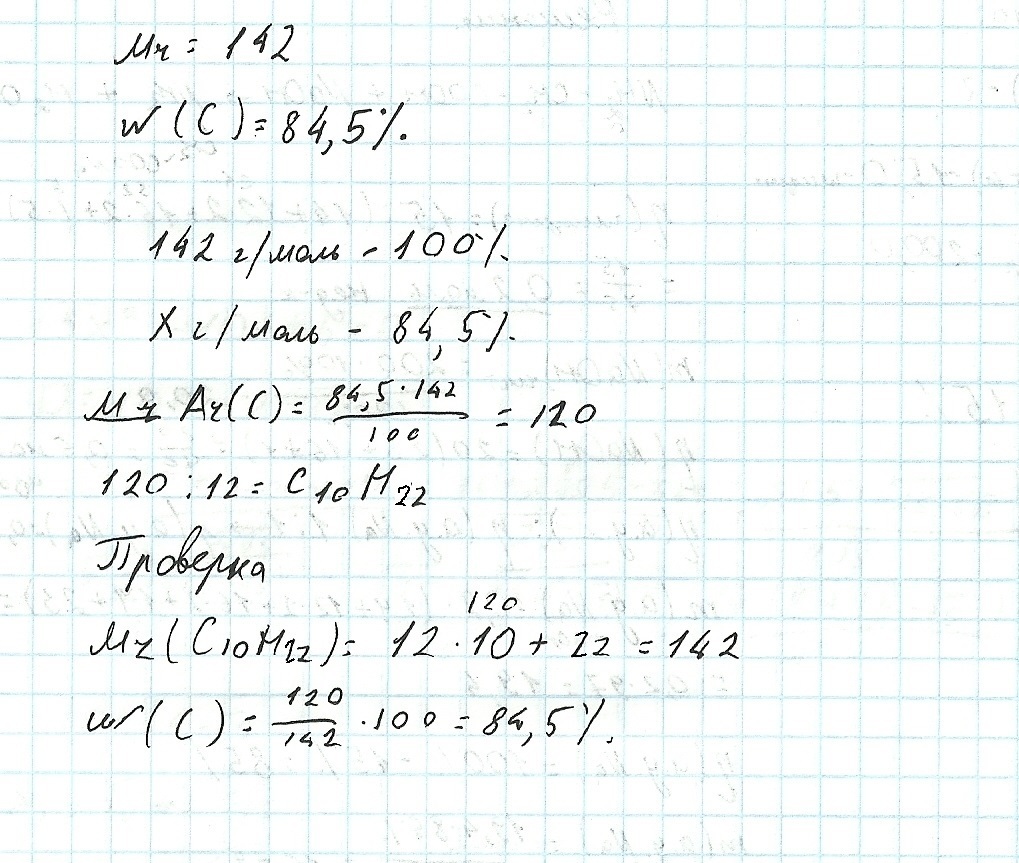 Mr = 142
w(C) = 84,5%.
142 г/моль - 100%.
X г/моль - 84,5%.
Mr Ar(C) = 84,5·142/100 = 120
120 : 12 = C₁₀H₂₂
Проверка
120
Mr(C₁₀H₂₂) = 12·10 + 22 = 142
w(C) = 120/142 ·100 = 84,5%.